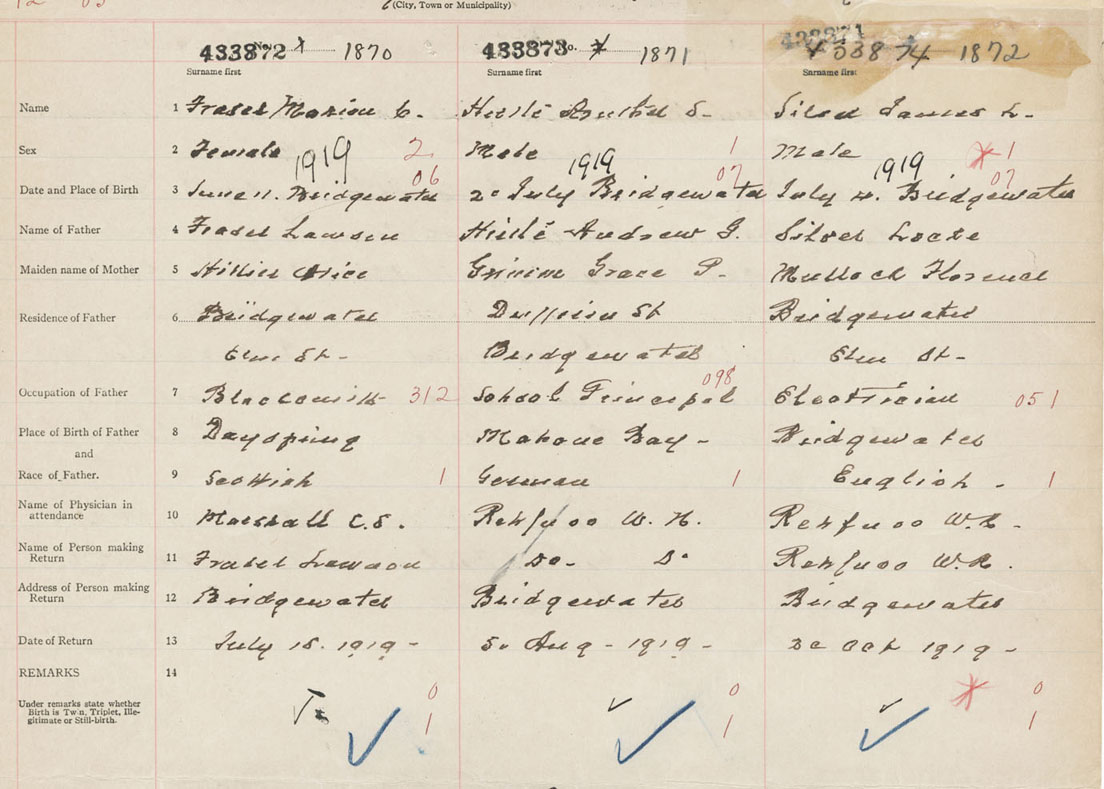 12 03
(City, Town or Municipality)
433872 No. x 1870 433873 No. x 1871 433874 1872
Surname first Surname first Surname first
Name 1 Fraser Marion C. Hirtle S. Silver James L.
Sex 2 Female 2 Male 1 Male 1
1919 06 1919 07 1919 07
Date and Place of Birth 3 June 11. Bridgewater 2 July Bridgewater July 4. Bridgewater
Name of Father 4 Fraser Lawson Hirtle Andrew G. Silver Locke
Maiden name of Mother 5 Hillier Alice Grimm Grace P. Mulloch Florence
Residence of Father 6 Bridgewater Dufferin St Bridgewater
Elm St- Bridgewater Elm St-
Occupation of Father 7 Blacksmith 312 School Principal 098 Electrician 051
Place of Birth of Father 8 Dayspring Mahone Bay- Bridgewater
and
Race of Father. 9 Scottish 1 German 1 English - 1
Name of Physician in attendance 10 Marshall C.S. Rehfuss W. N. Rehfuss W.N.
Name of Person making Return 11 Fraser Lawson Do- Do Rehfuss W.N.
Address of Person making Return 12 Bridgewater Bridgewater Bridgewater
Date of Return 13 July 15. 1919- 5. Aug - 1919- Oct 1919-
REMARKS 14
0 0 0
Under remarks state whether Birth is Twin, Triplet, Ille-
gitimate or Still-birth.
1 1 1